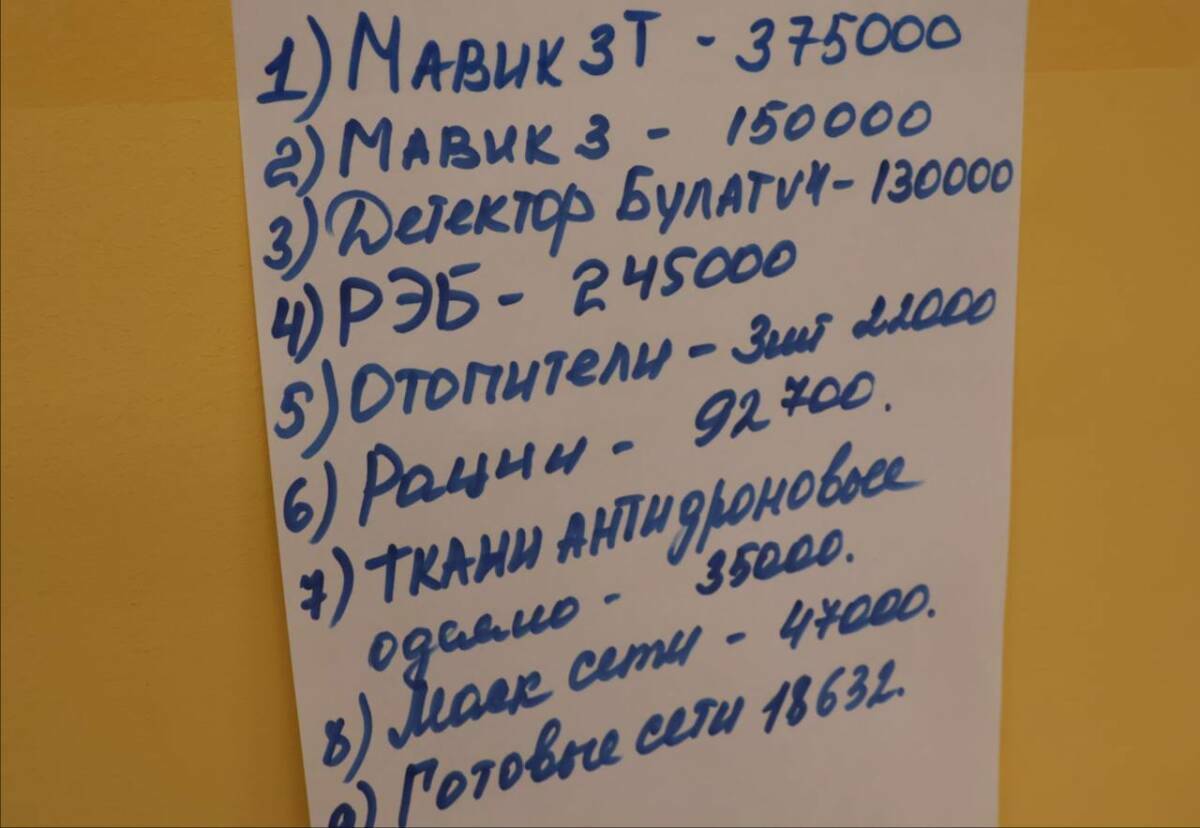 1) Мавик 3Т - 375000
2) Мавик 3 - 150000
3) Детектор Булат V4 - 130000
4) РЭБ - 245000
5) Отопители - 3шт 22000
6) Рации - 92700.
7) Ткани антидроновые
одеяло - 35000.
8) Маск сети - 47000.
9) Готовые сети 18632.